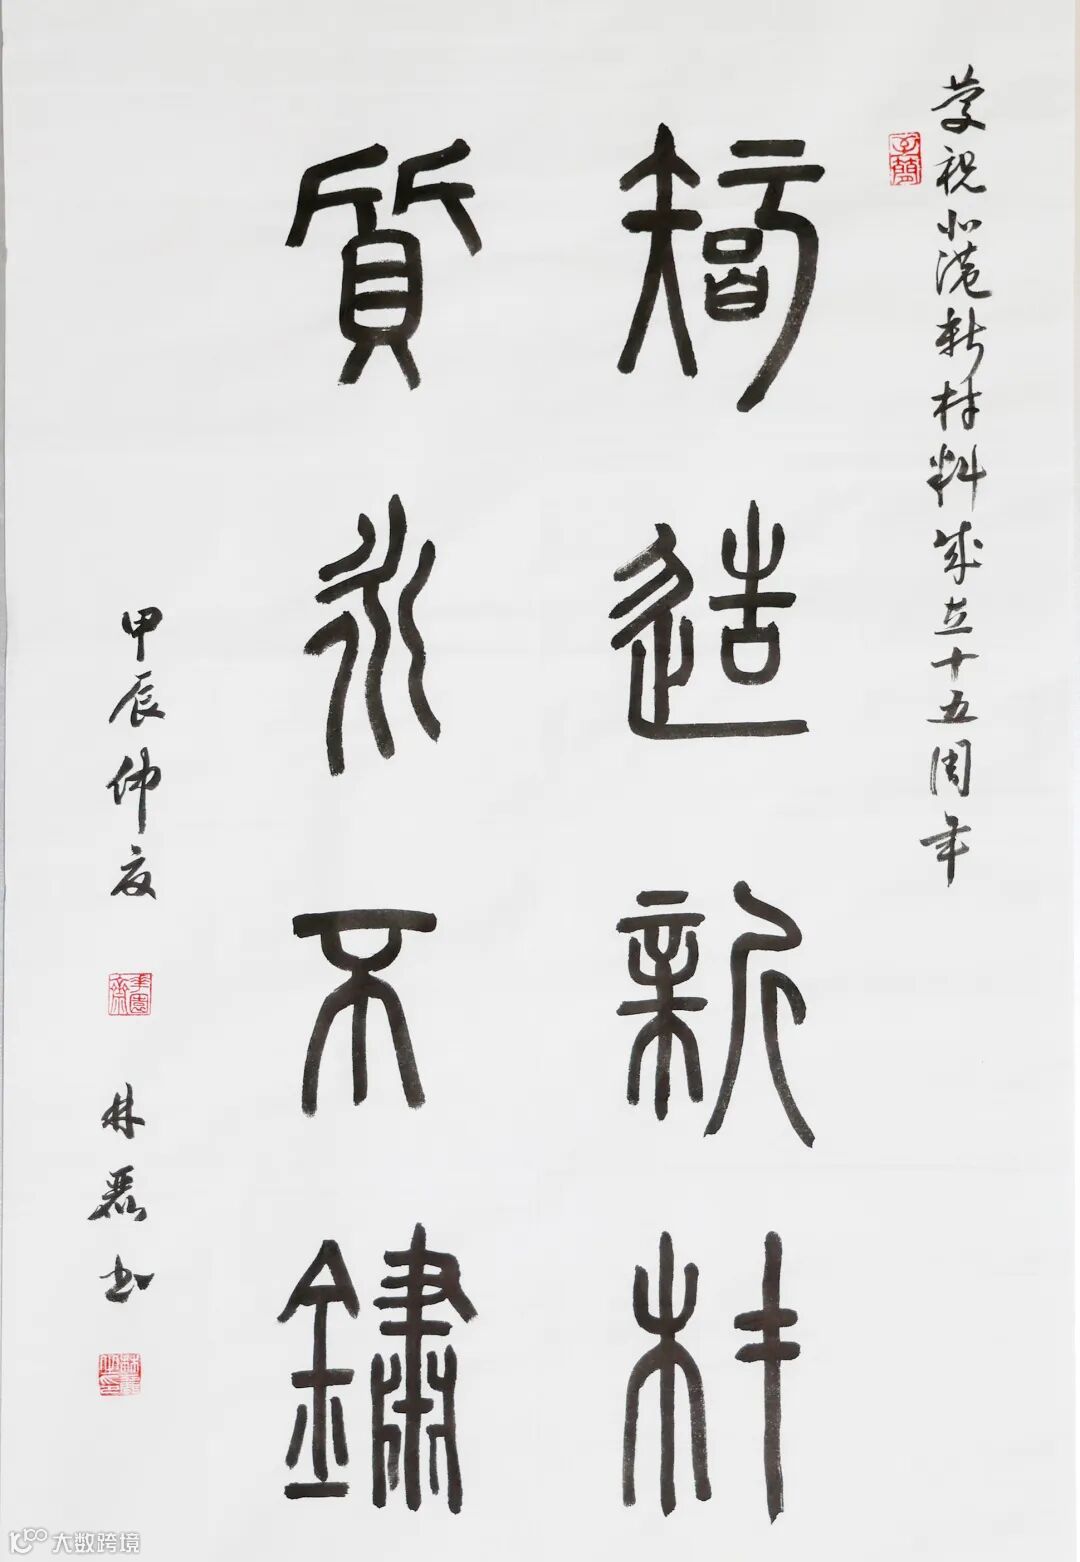 慶祝北港新材料成立十五周年
智造新材
質永不鏽
甲辰仲夏
林磊书
大数跨境